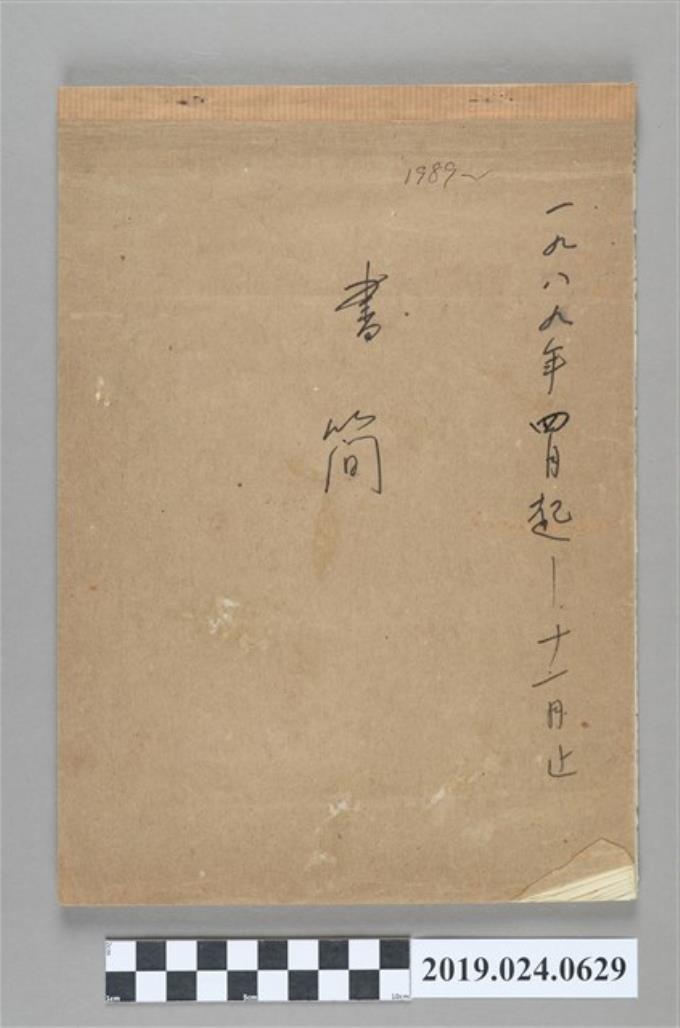 1989~
一九八九年四月起—十一月止
書簡
2019.024.0629
1cm 5cm 10cm